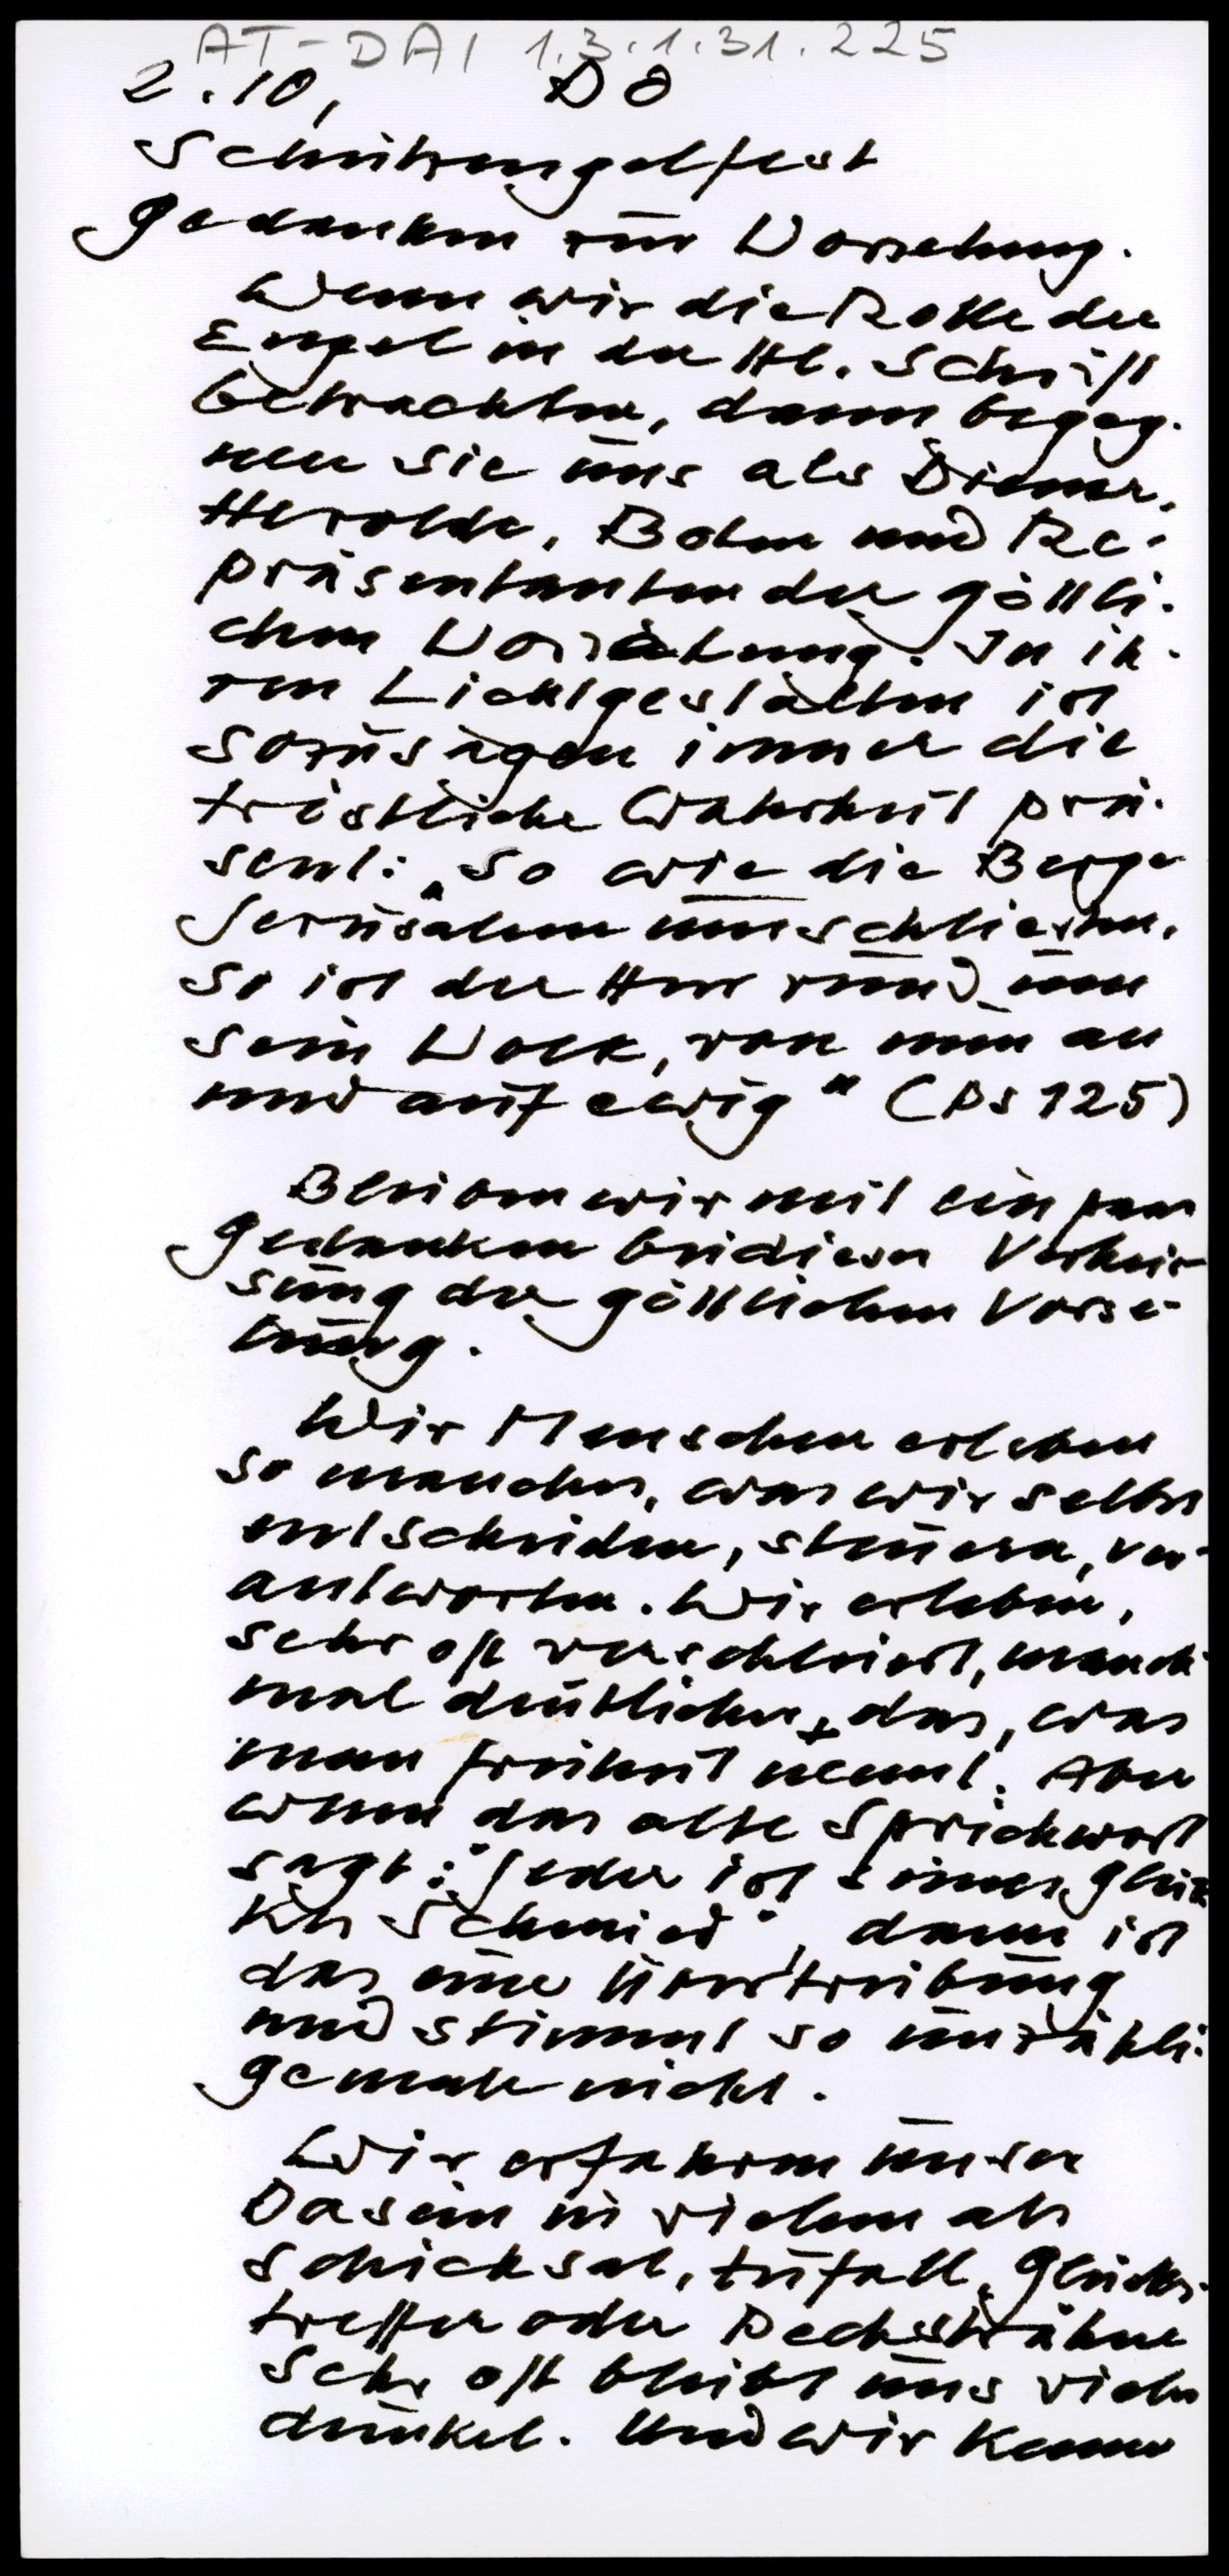 AT-DAI 1.3.1.31.225
2.10, DO
Schutzengelfest
Gedanken zur Vorsehung.
Wenn wir die Rolle der
Engel in der Hl. Schrift
betrachten, dann begeg-
nen sie uns als Diener,
Herolde, Boten und Re-
präsentanten der göttli-
chen Vorsehung. In ih-
ren Lichtgestalten ist
sozusagen immer die
tröstliche Wahrheit prä-
sent: "So wie die Berge
Jerusalem umschließen,
so ist der Herr rund um
sein Volk, von nun an
und auf ewig" (Ps 125)
Bleiben wir mit ein paar
Gedanken bei dieser Verheis-
sung der göttlichen Vorse-
hung.
Wir Menschen erleben
so manches, was wir selbst
entscheiden, steuern, ver-
antworten. Wir erleben,
sehr oft verschleiert, manch-
mal deutlicher, das, was
man Freiheit nennt. Aber
wenn das alte Sprichwort
sagt: "Jeder ist seines Glük-
kes Schmied", dann ist
das eine Übertreibung
und stimmt so unzähli-
gemale nicht.
Wir erfahren unser
Dasein in vielem als
Schicksal, Zufall, Glücks-
treffer oder Pechsträhne
Sehr oft bleibt uns vieles
dunkel. Und wir kennen